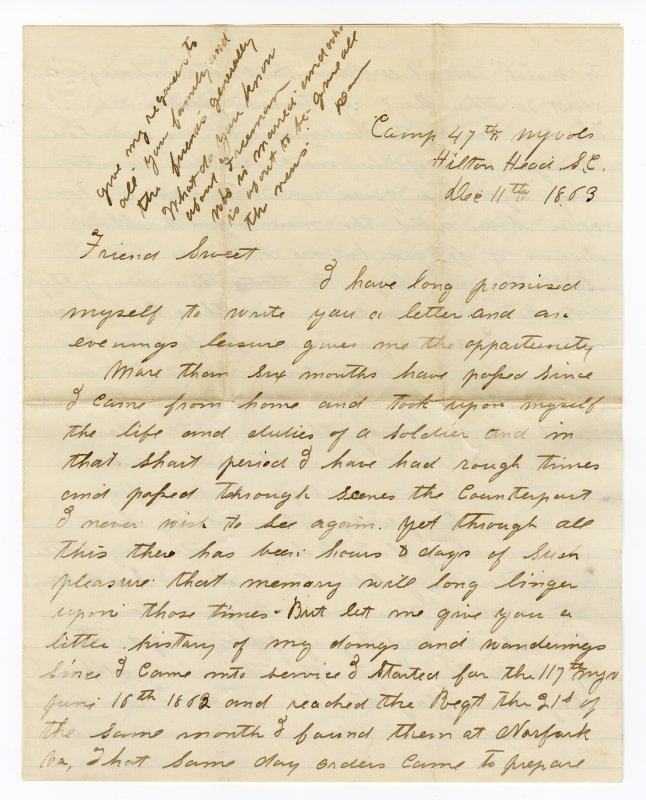 give my regards to
all your family and
the friends generally
What do you know
about Freeman
who is married and who
is about to be. Give all
the news.
Camp 47th NYVols
Hilton Head S.C.
Dec 11th 1863
Friend Sweet
I have long promised
myself to write you a letter and an
evenings leisure gives me the oppartunity
More than six months have passed since
I came from home and took upon myself
the life and duties of a soldier and in
that short period I have had rough times
and passed through scenes the Counterpart
I never wish to see again. yet through all
this there has been hours & days of such
pleasure that memory will long linger
upon those times - But let me give you a
little history of my doings and wanderings
Since I came into service I started for the 117th NYV
June 16th 1863 and reached the Regt the 21st of
the same month I found them at Norfork
Va, That same day orders came to prepare